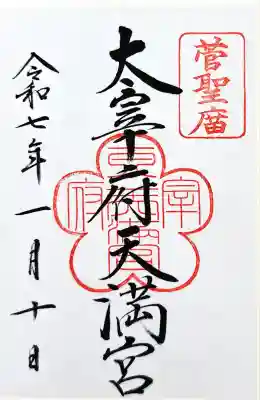 菅聖庿
太宰府天満宮
令和七年一月十日